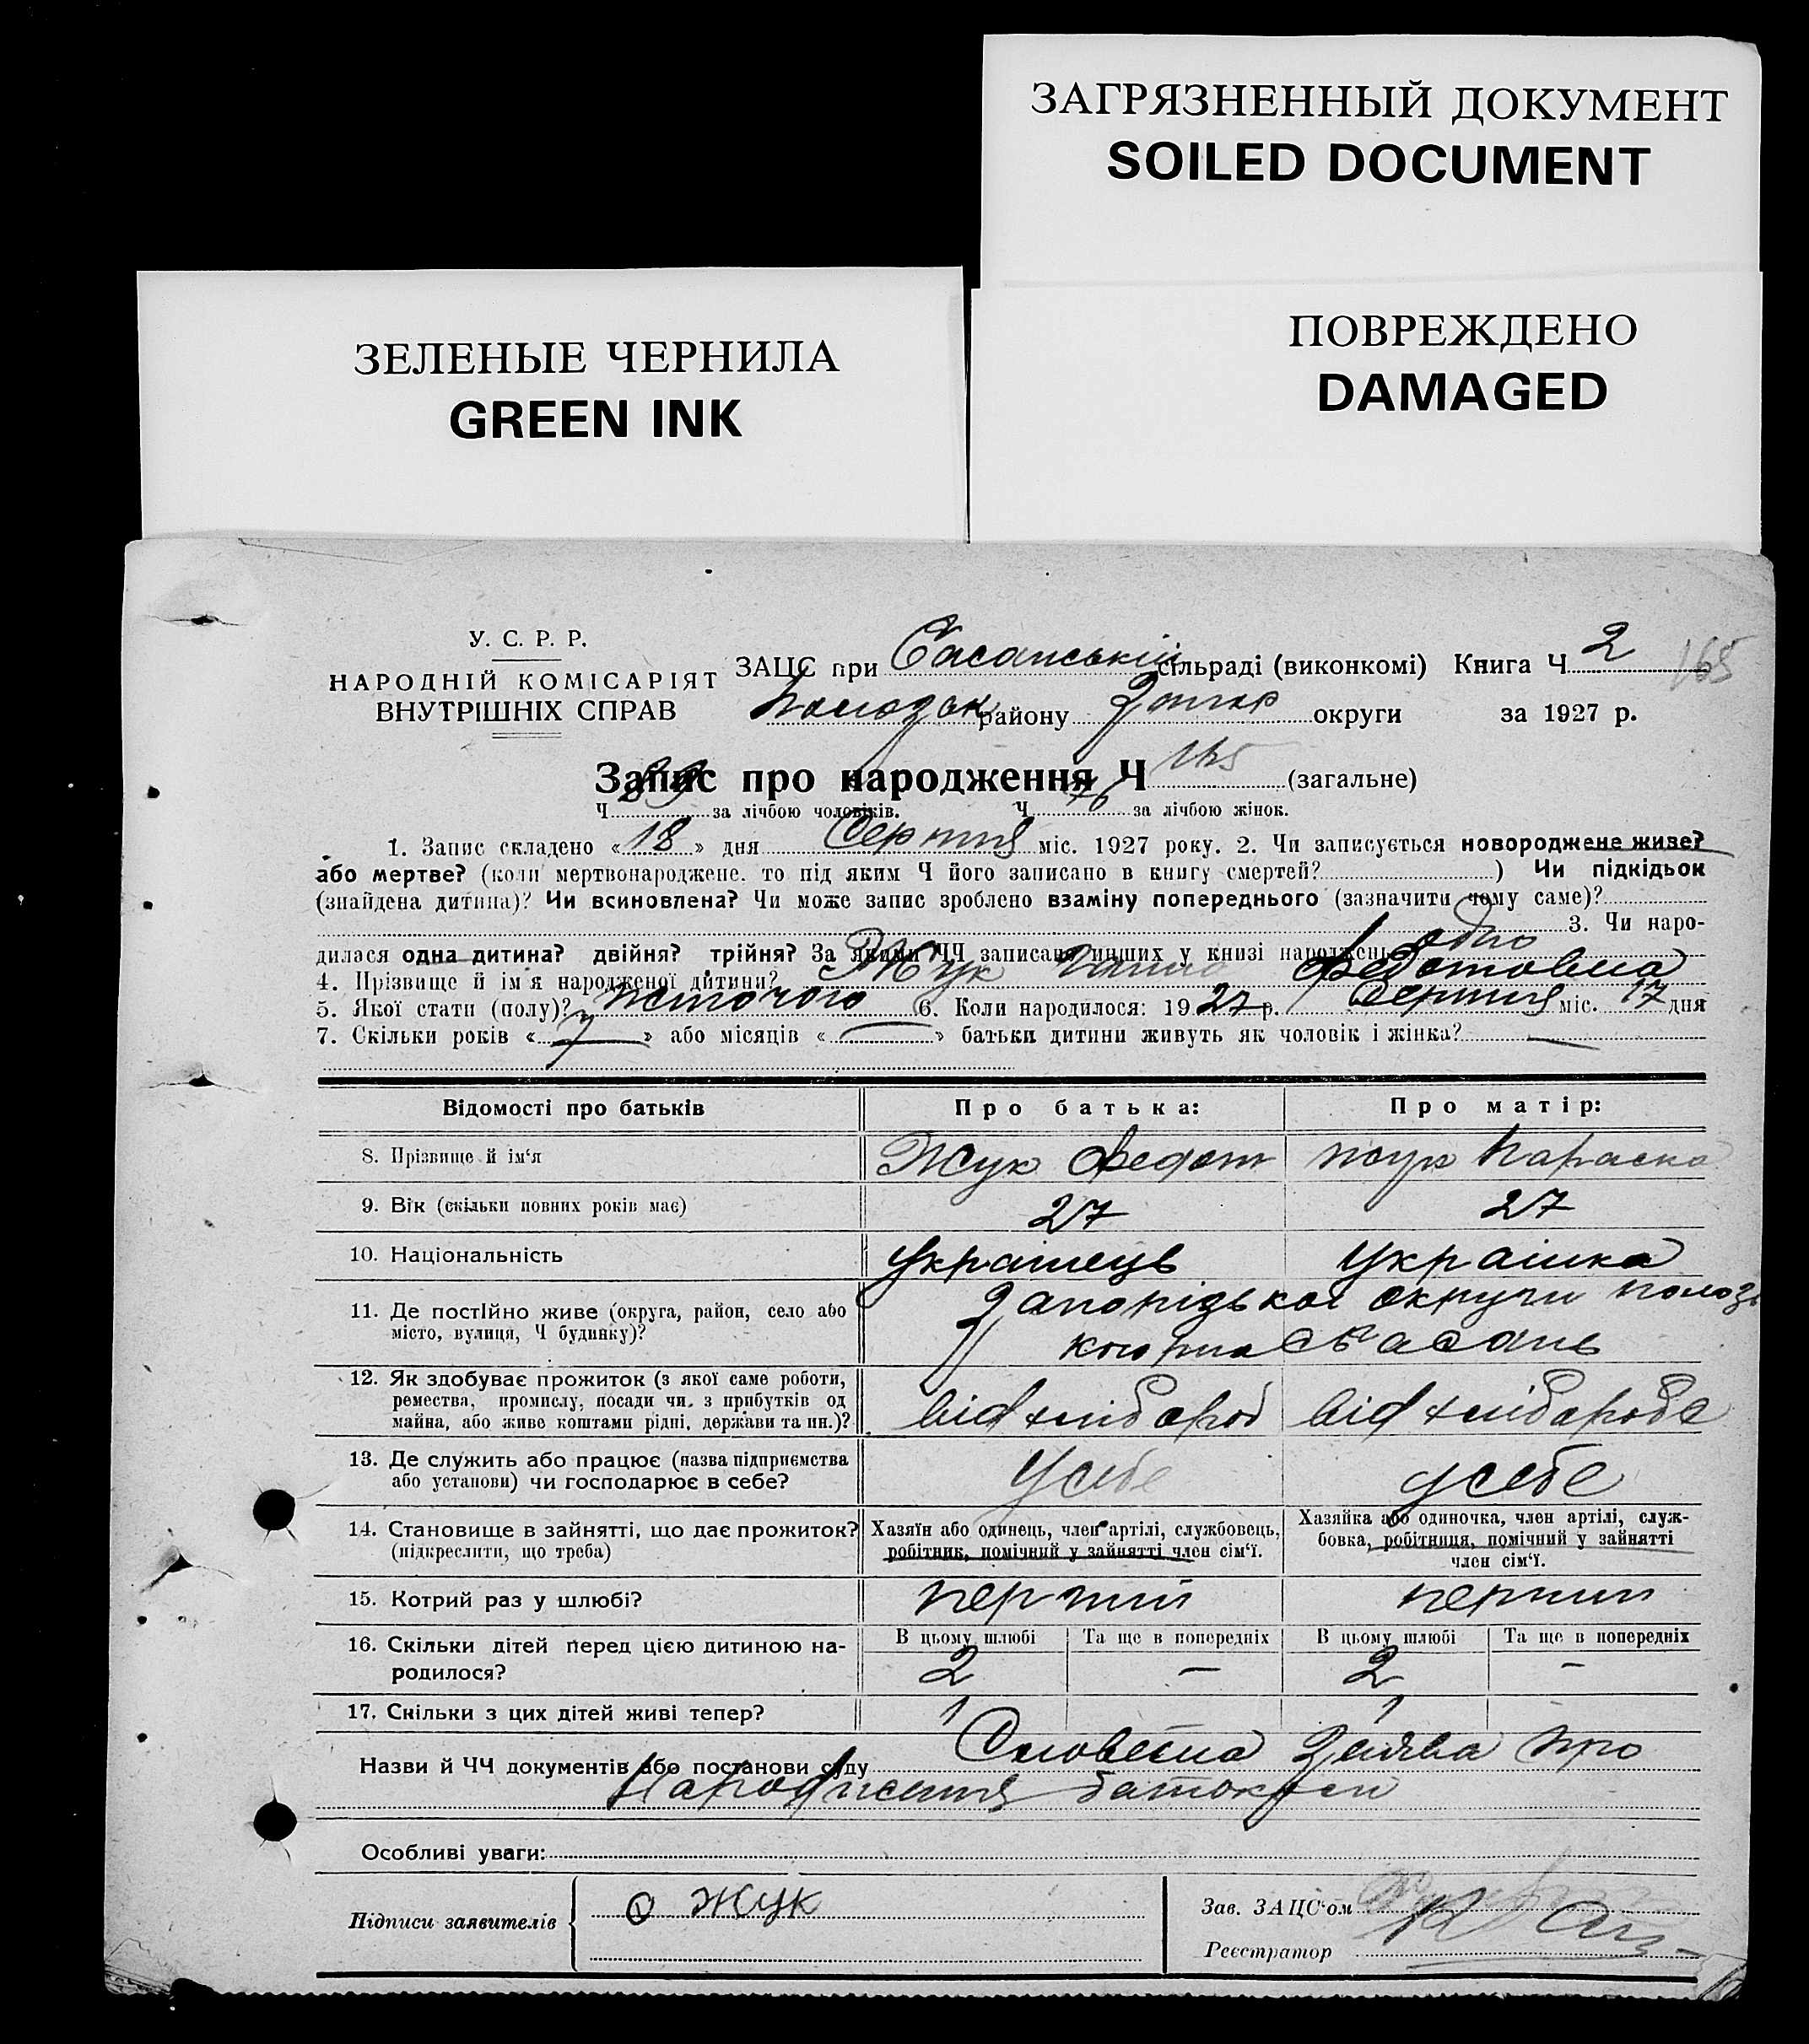 ЗАГРЯЗНЕННЫЙ ДОКУМЕНТ
SOILED DOCUMENT
ЗЕЛЕНЫЕ ЧЕРНИЛА
GREEN INK
ПОВРЕЖДЕНО
DAMAGED
У. С. Р. Р.
НАРОДНІЙ КОМІСАРІЯТ
ВНУТРІШНІХ СПРАВ
ЗАЦС при Басанській сільраді (виконкомі) Книга Ч 2 165
району Запор округи за 1927 р.
Запис про народження Ч 165 (загальне)
Ч 89 за лічбою чоловіків. Ч 76 за лічбою жінок.
1. Запис складено « 18 » дня Серпня міс. 1927 року. 2. Чи записується новороджене живе?
або мертве? (коли мертвонароджене, то під яким Ч його записано в книгу смертей? ) Чи підкідьок
(знайдена дитина)? Чи всиновлена? Чи може запис зроблено взаміну попереднього (зазначити чому саме)?
3. Чи наро-
дилася одна дитина? двійня? трійня? За якими ЧЧ записано инших у книзі народжень одно
4. Прізвище й ім'я народженої дитини? Жук Ганна Федотовна
5. Якої стати (полу)? жіночого 6. Коли народилося: 1927 р. Серпня міс. 17 дня
7. Скільки років « 7 » або місяців « — » батьки дитини живуть як чоловік і жінка? —
Відомості про батьків Про батька: Про матір:
8. Прізвище й ім'я Жук Федот Жук Параска
9. Вік (скільки повних років має) 27 27
10. Національність Українець Українка
11. Де постійно живе (округа, район, село або Запорізької округи Полозь
місто, вулиця, Ч будинку)? Басань
12. Як здобуває прожиток (з якої саме роботи,
ремества, промислу, посади чи, з прибутків од
майна, або живе коштами рідні, держави та ин.)? від хлібороб від хлібороб
13. Де служить або працює (назва підприємства
або установи) чи господарює в себе? Усебе усебе
14. Становище в зайнятті, що дає прожиток? Хазяїн або одинець, член артілі, службовець, Хазяйка або одиночка, член артілі, служ-
(підкреслити, що треба) робітник, помічний у зайнятті член сім'ї. бовка, робітниця, помічний у зайнятті
член сім'ї.
15. Котрий раз у шлюбі? перший перший
16. Скільки дітей перед цією дитиною на- В цьому шлюбі Та ще в попередніх В цьому шлюбі Та ще в попередніх
родилося? 2 — 2 —
17. Скільки з цих дітей живі тепер? 1 1
Назви й ЧЧ документів або постанови суду Словесна Заява про
Народження батьком
Особливі уваги:
Підписи заявителів Ф Жук
Зав. ЗАЦС'ом
Реєстратор